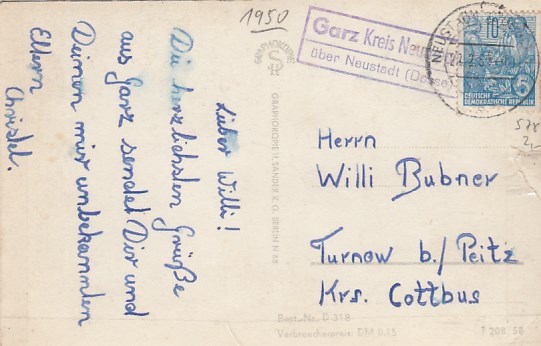 1950
Lieber Willi!
Die herzlichsten Grüße
aus Garz sendet Dir und
Deinen mir unbekannten
Eltern
Christel.
GRAPHOKOPIE H. SANDER K. G. BERLIN N
Garz Kreis
über Neustadt
10
5
DEUTSCHE
DEMOKRATISCHE REPUBLIK
578
2,
Herrn
Willi Bubner
Turnow b./Peitz
Krs. Cottbus
Best.-Nr. D 318
Verbraucherpreis: DM 0.15
T 208 58